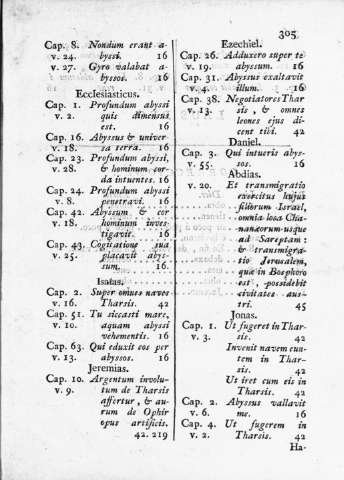 305
Cap. 8. Nondum erant a-
v. 24. byssi. 16
v. 27. Gyro valabat a-
byssos. 16
Ecclesiasticus.
Cap. 1. Profundum abyssi
v. 2. quis dimensus
est. 16
Cap. 16. Abyssus & univer
v. 18. sa terra. 16
Cap. 23. Profundum abyssi,
v. 28. & hominum cor-
da intuentes. 16
Cap. 24. Profundum abyssi
v. 8. penetravi. 16
Cap. 42. Abyssum & cor
v. 18. hominum inves-
tigavit. 16
Cap. 43. Cogitatione sua
v. 25. placavit abys-
sum. 16
Isaias.
Cap. 2. Super omnes naves
v. 16. Tharsis. 42
Cap. 51. Tu siccasti mare,
v. 10. aquam abyssi
vehementis. 16
Cap. 63. Qui eduxit eos per
v. 13. abyssos. 16
Jeremias.
Cap. 10. Argentum involu-
v. 9. tum de Tharsis
affertur, & au-
rum de Ophir
opus artificis.
42. 219
Ezechiel.
Cap. 26. Adduxero super te
v. 19. abyssum. 16
Cap. 31. Abyssus exaltavit
v. 4. illum. 16
Cap. 38. Negotiatores Thar
v. 13. sis, & omnes
leones ejus di-
cent tibi. 42
Daniel.
Cap. 3. Qui intueris abys-
v. 55. sos. 16
Abdias.
v. 20. Et transmigratio
exercitus hujus
filiorum Israel,
omnia loca Cha-
nanæorum usque
ad Sareptam:
& transmigra-
tio Jerusalem,
quæ in Bosphoro
est, possidebit
civitates aus-
tri. 45
Jonas.
Cap. 1. Ut fugeret in Thar-
v. 3. sis. 42
Invenit navem eun-
tem in Thar-
sis. 42
Ut iret cum eis in
Tharsis. 42
Cap. 2. Abyssus vallavit
v. 6. me. 16
Cap. 4. Ut fugerem in
v. 2. Tharsis. 42
Ha-